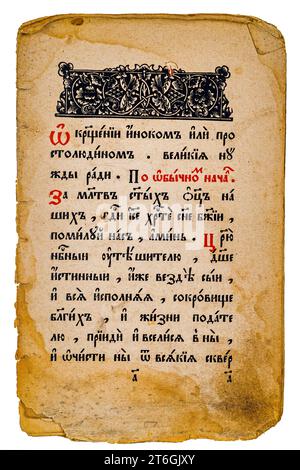 Ѡ҆ крⷭ҇щенїи и҆нокомъ и҆лѝ про
столюдиномъ . великїѧ нꙋ
жды ради . По ѡ҆бычномⸯ нача́.
За млⷭ҇твъ ст҃ыхъ ѻ҆ц҃ъ на
шихъ , гдⷭ҇и і҆с҃е хрⷭ҇те сн҃е бж҃їи ,
помилꙋй насъ , аминь . Црⷭ҇ю
нбⷭ҇ныи ᲂу҆тѣшителю , дш҃е
и҆стинныи , и҆же вездѣ сыи ,
и҆ всѧ и҆сполнѧѧ , сокровище
бл҃гихъ , и҆ жизни подате
лю , прїиди и҆ вселисѧ в ны ,
и҆ ѡ҆чисти ны ѿ всѧкїѧ сквер
а҃ а҃
alamy
Image ID: 2T6GJXY
www.alamy.com